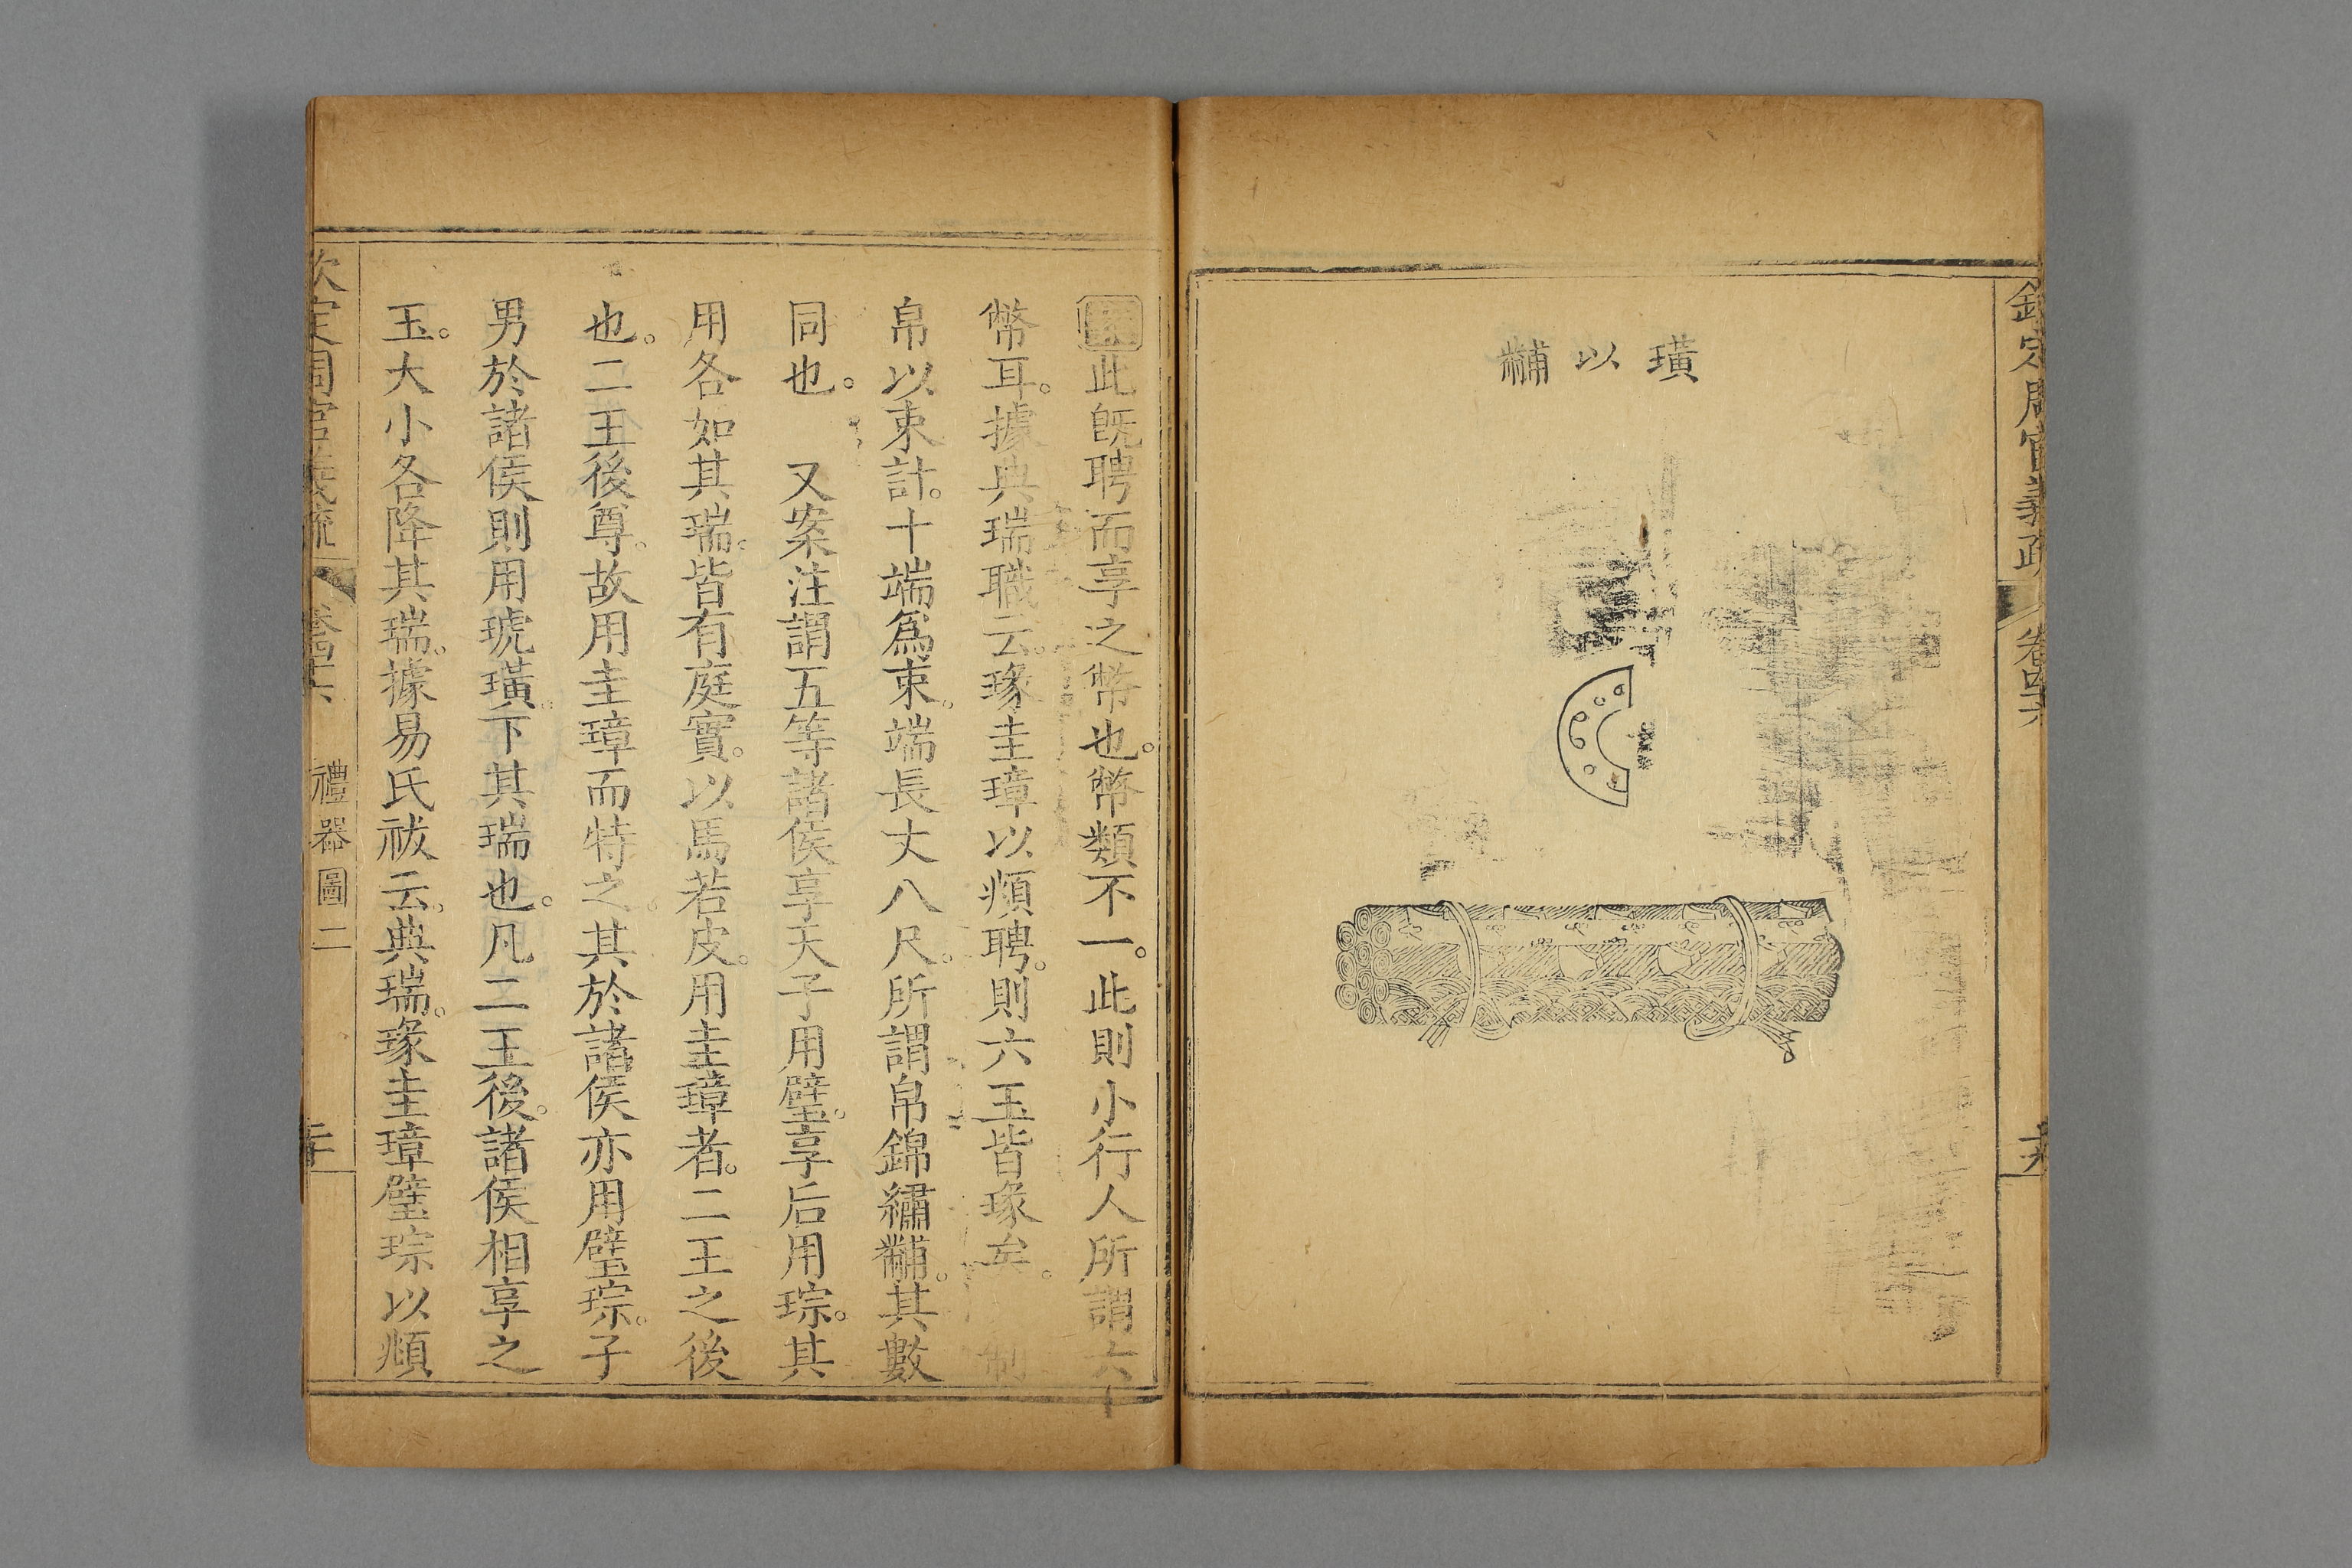 欽定周官義疏 卷四十六
璜以黼
此既聘而享之幣也。幣類不一。此則小行人所謂六
幣耳。據典瑞職云。瑑圭璋以頫聘。則六玉皆瑑矣。 制
帛以束計。十端爲束。端長丈八尺。所謂帛錦繡黼。其數
同也。 又案注謂五等諸侯享天子用璧。享后用琮。其
用各如其瑞。皆有庭實。以馬若皮。用圭璋者。二王之後
也。二王後尊。故用圭璋而特之。其於諸侯亦用璧琮。子
男於諸侯則用琥璜。下其瑞也。凡二王後。諸侯相享之
玉。大小各降其瑞。據易氏祓云。典瑞。瑑圭璋璧琮以頫
欽定周官義疏 卷四十六 禮器圖二